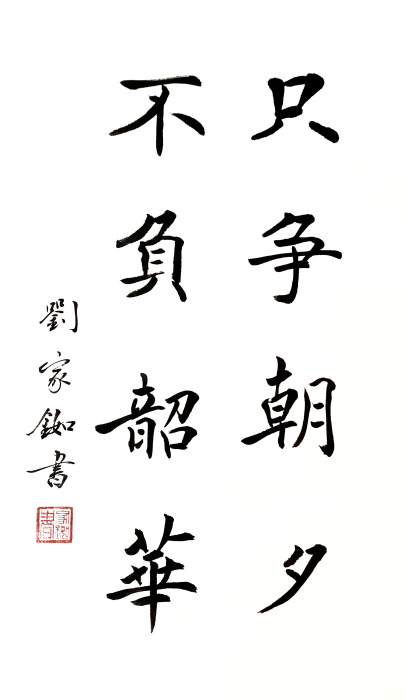 只争朝夕
不負韶華
劉家釹書